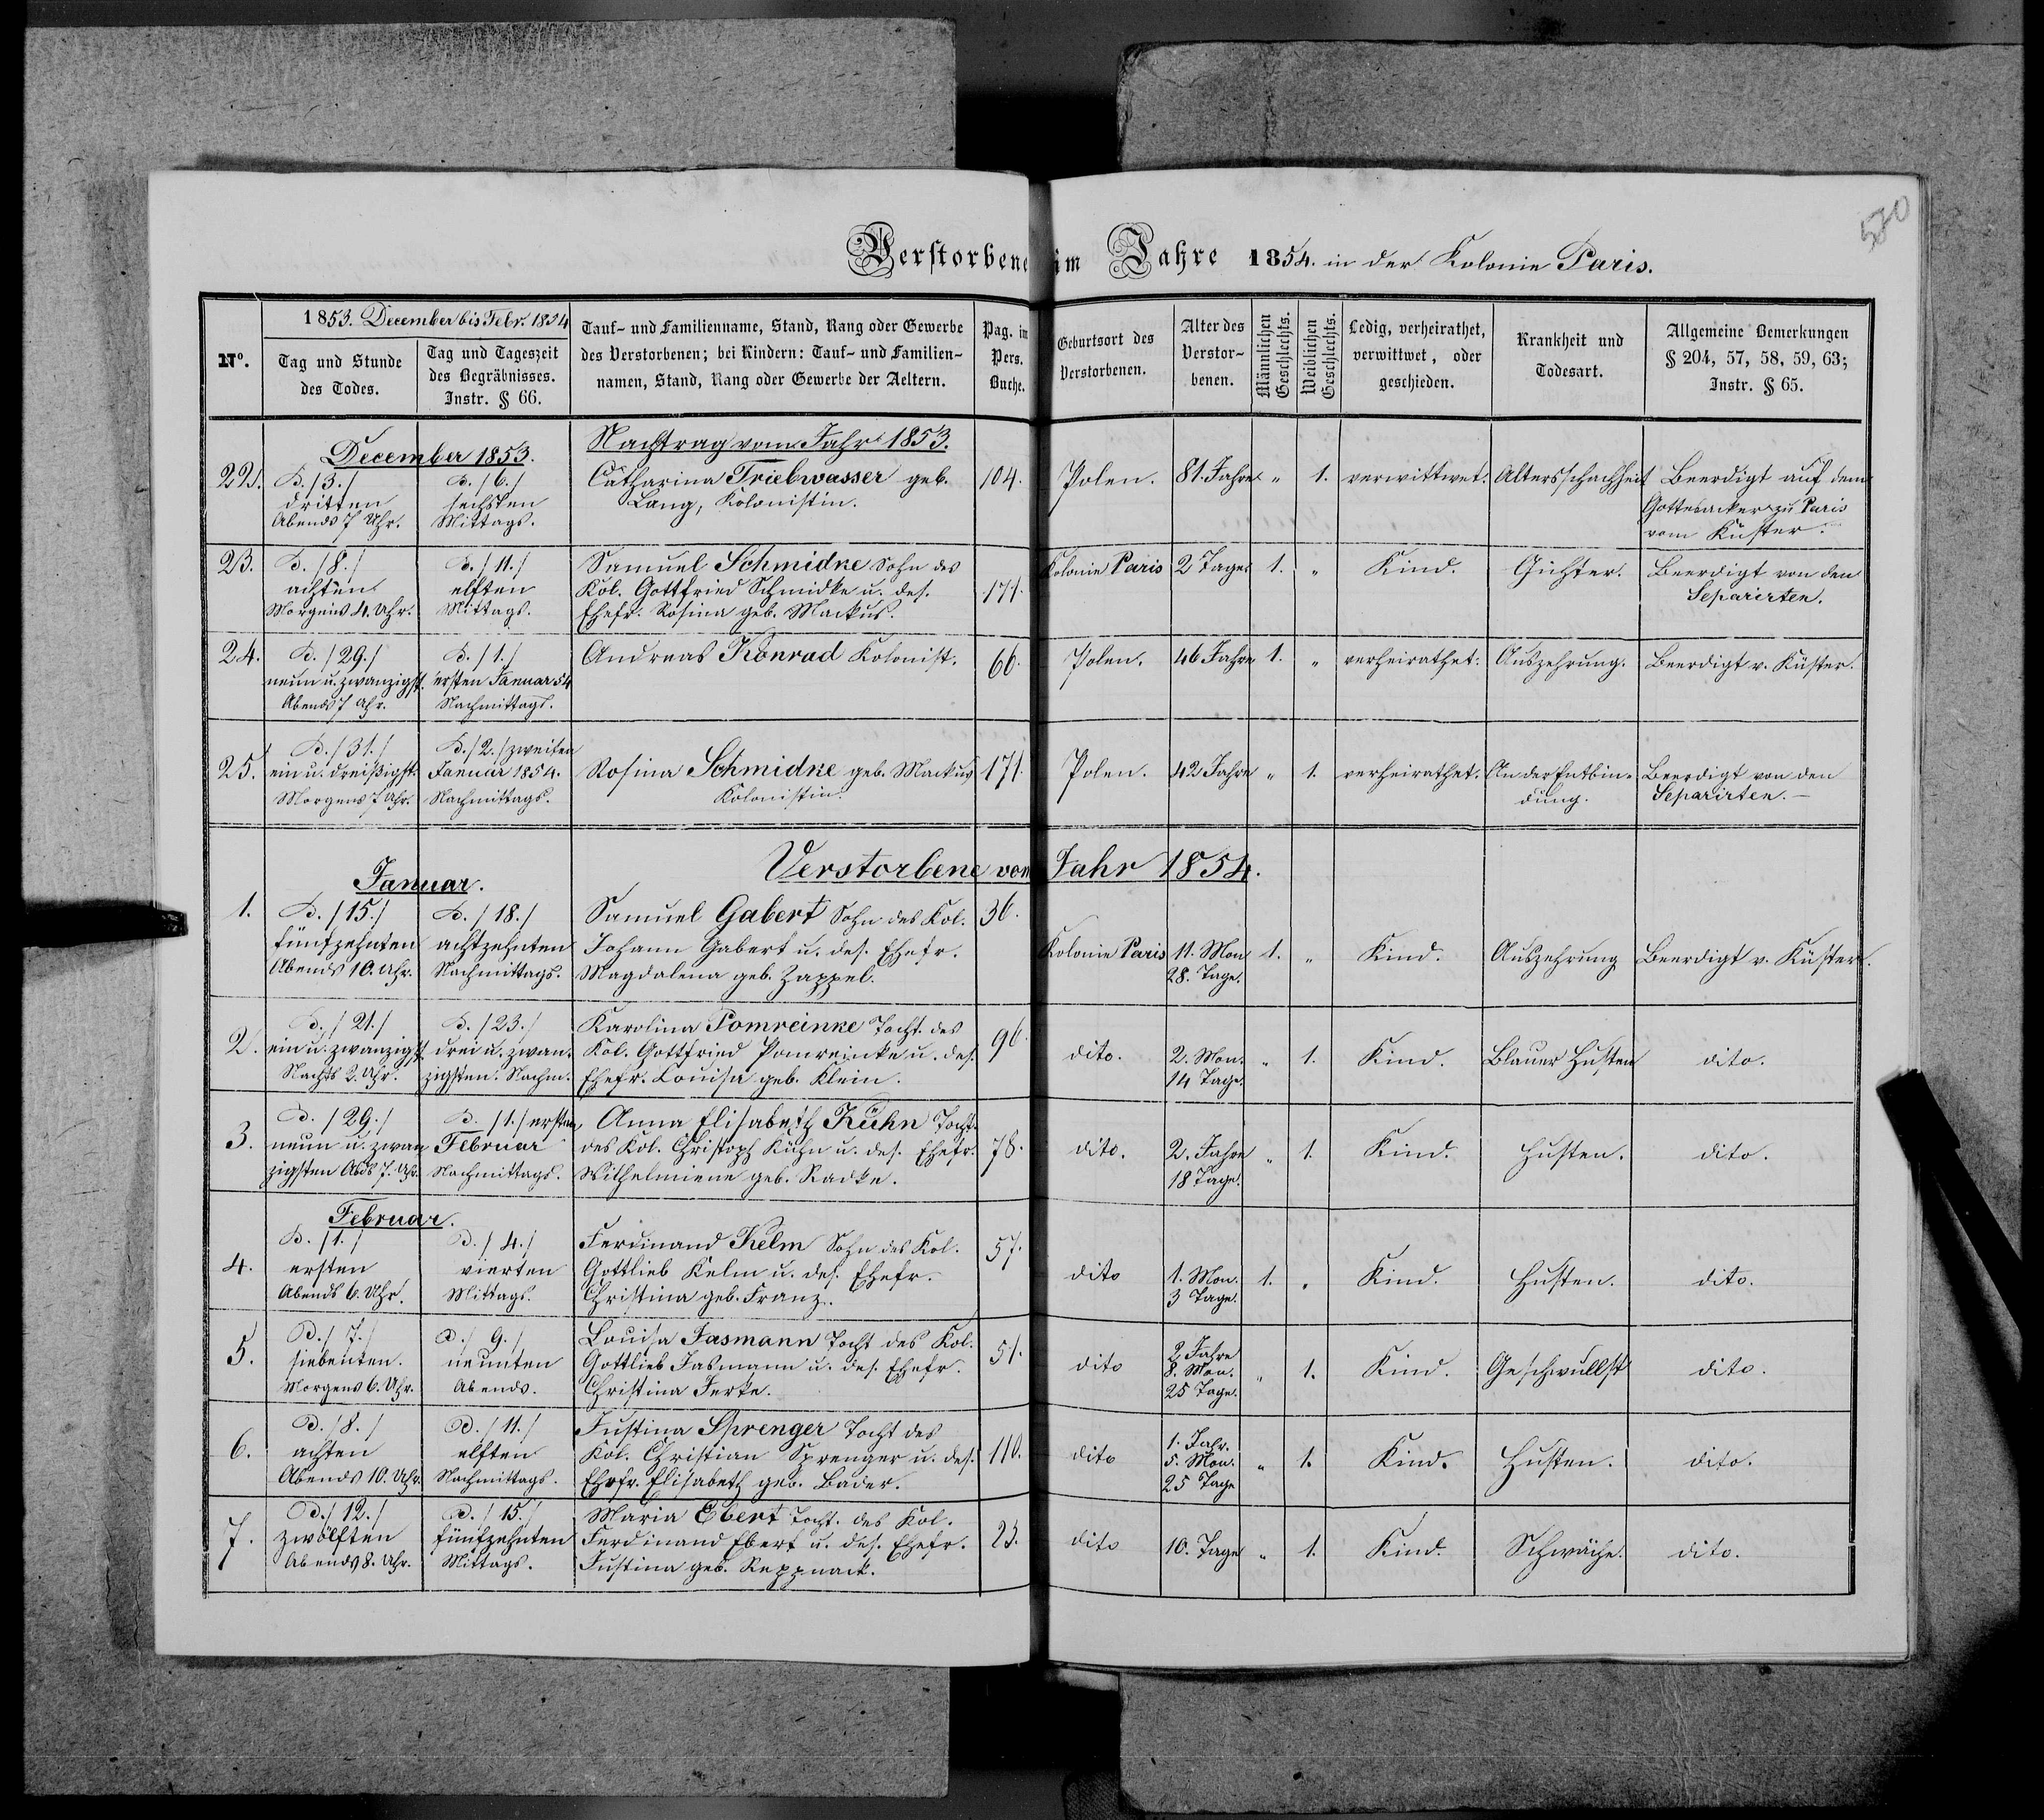 570
Verstorbene im Jahre 1854. in der Kolonie Paris.
No.
1853. December bis Febr. 1854
Tag und Stunde
des Todes.
Tag und Tageszeit
des Begräbnisses.
Instr. § 66.
Tauf- und Familienname, Stand, Rang oder Gewerbe
des Verstorbenen; bei Kindern: Tauf- und Familien-
namen, Stand, Rang oder Gewerbe der Aeltern.
Pag. im
Pers.
Buche.
Geburtsort des
Verstorbenen.
Alter des
Verstor-
benen.
Männlichen
Geschlechts.
Weiblichen
Geschlechts.
Ledig, verheirathet,
verwittwet, oder
geschieden.
Krankheit und
Todesart.
Allgemeine Bemerkungen
§ 204, 57, 58, 59, 63;
Instr. § 65.
December 1853.
Nachtrag vom Jahr 1853.
22.
D. /3./
dritten
Abends 7 Uhr.
D. /6./
sechsten
Mittags.
Catharina Triebwasser geb.
Lang, Kolonistin.
104.
Polen.
81. Jahre
"
1.
verwittwet.
Altersschachheit
Beerdigt auf dem
Gottesacker zu Paris
vom Küster.
23.
D. /8./
achten
Morgens 4. Uhr.
D. /11./
elften
Mittags.
Samuel Schmidke Sohn des
Kol. Gottfried Schmidke u. des.
Ehefr. Rosina geb. Mackus.
171.
Kolonie Paris
2 Tage
1.
"
Kind.
Gichter.
Beerdigt von den
Separirten.
24.
D. /29./
neun u. zwanzigst.
Abends 7 Uhr.
D. /1./
ersten Januar 54
Nachmittags.
Andreas Konrad Kolonist.
66.
Polen.
46 Jahre
1.
"
verheirathet.
Auszehrung.
Beerdigt v. Küster.
25.
D. /31./
ein u. dreißigst.
Morgens 7 Uhr.
D. /2./ zweiten
Januar 1854.
Nachmittags.
Rosina Schmidke geb. Mackus
Kolonistin.
171.
Polen.
42 Jahre
"
1.
verheirathet.
An der Entbin-
dung.
Beerdigt von den
Separirten.
Verstorbene vom Jahr 1854.
Januar.
1.
D. /15./
fünfzehnten
Abends 10. Uhr.
D. /18./
achtzehnten
Nachmittags.
Samuel Gabert Sohn des Kol.
Johann Gabert u. des. Ehefr.
Magdalena geb. Zappel.
36.
Kolonie Paris
11. Mon
28. Tage.
1.
"
Kind.
Auszehrung
Beerdigt v. Küster.
2.
D. /21./
ein u. zwanzigst.
Nachts 2. Uhr.
D. /23./
drei u. zwan-
zigsten. Nachm.
Karolina Pomreinke Tocht. des
Kol. Gottfried Pomreincke u. des.
Ehefr. Louisa geb. Klein.
96.
dito.
2. Mon.
14 Tage.
"
1.
Kind.
Blauer Husten
dito.
3.
D. /29./
neun u. zwan
zigsten Abds 7. Uhr.
D. /1./ ersten
Februar
Nachmittags.
Anna Elisabeth Kühn Tocht.
des Kol. Christoph Kühn u. des. Ehefr.
Wilhelmiene geb. Radke.
78.
dito.
2. Jahre
18 Tage.
"
1.
Kind.
Husten.
dito.
Februar.
4.
D. /1./
ersten
Abends 6. Uhr.
D. /4./
vierten
Mittags.
Ferdinand Kelm Sohn des Kol.
Gottlieb Kelm u. des. Ehefr.
Christina geb. Franz.
57.
dito
1. Mon.
3 Tage.
1.
"
Kind.
Husten.
dito.
5.
D. /7./
siebenten.
Morgens 6. Uhr.
D. /9./
neunten
Abends.
Louisa Jasmann Tocht des Kol.
Gottlieb Jasmann u. des. Ehefr.
Christina Jerke.
51.
dito
2 Jahre
8. Mon.
25 Tage.
"
1.
Kind.
Geschwullst
dito.
6.
D. /8./
achten
Abends 10. Uhr
D. /11./
elften
Nachmittags.
Justina Sprenger Tocht des
Kol. Christian Sprenger u. des.
Ehefr. Elisabeth geb. Bader.
110.
dito
1. Jahr.
5. Mon.
25 Tage
"
1.
Kind.
Husten.
dito.
7.
D. /12./
zwölften
Abends 8. Uhr.
D. /15./
fünfzehnten
Mittags.
Maria Ebert Tocht. des Kol.
Ferdinand Ebert u. des. Ehefr.
Justina geb. Reppnack.
23.
dito
10. Tage
"
1.
Kind.
Schwäche.
dito.